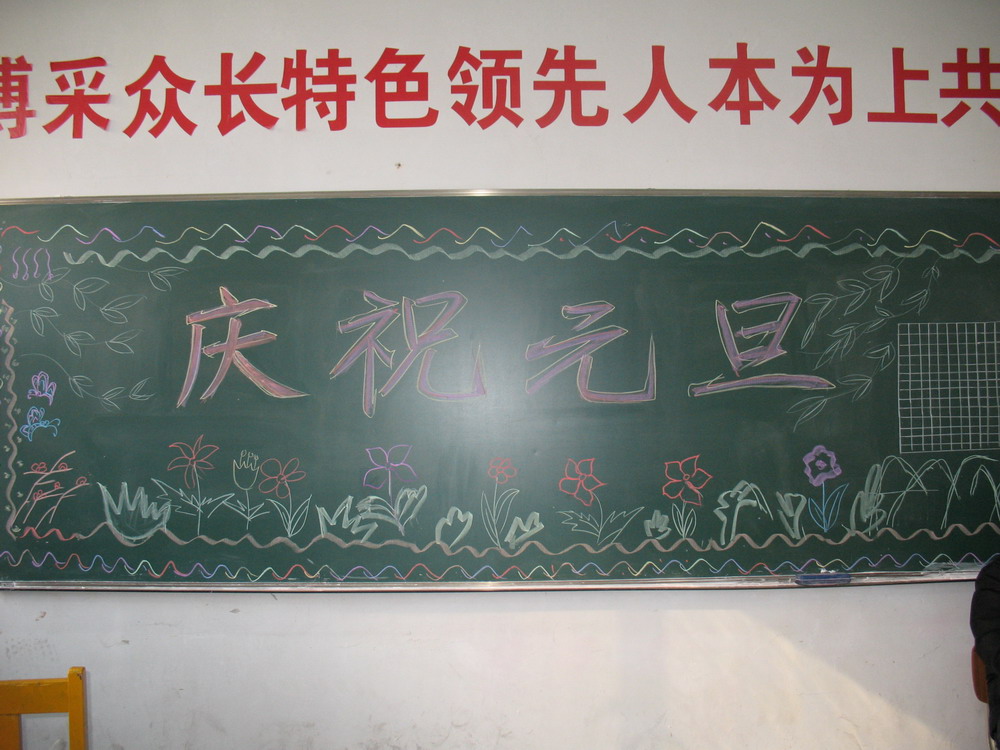 博采众长特色领先人本为上共
庆祝元旦